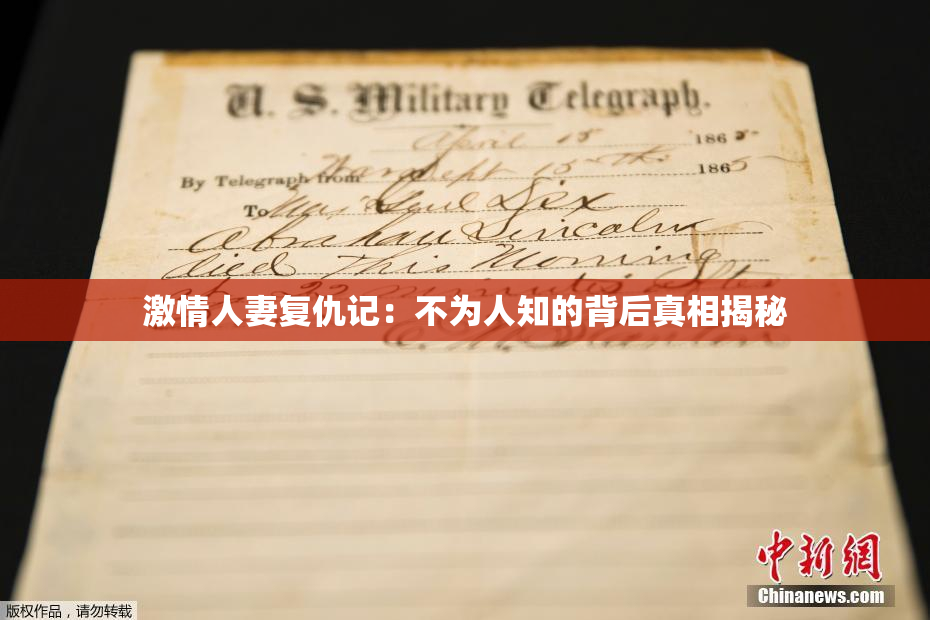 U. S. Military Telegraph.
April 15 1865
By Telegraph from War Dept 15th 1865
To Maj Genl Dix
Abraham Lincoln
died This Morning
at 22 minutes after
激情人妻复仇记：不为人知的背后真相揭秘
E. M. Stanton
中新网
Chinanews.com
版权作品，请勿转载